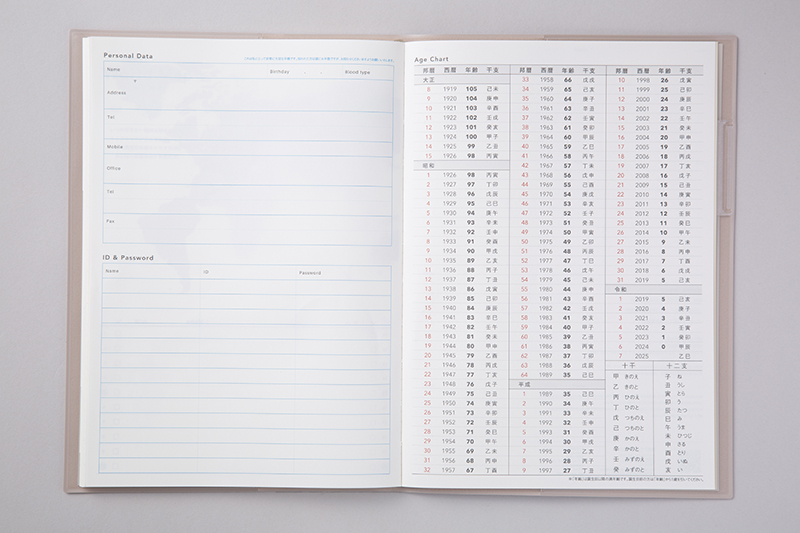 Personal Data
Name
Birthday . .
Blood type
Address
Tel
Mobile
Office
Tel
Fax
ID & Password
Name ID Password
Age Chart
邦暦 西暦 年齢 干支
大正
8 1919 105 己未
9 1920 104 庚申
10 1921 103 辛酉
11 1922 102 壬戌
12 1923 101 癸亥
13 1924 100 甲子
14 1925 99 乙丑
15 1926 98 丙寅
昭和
1 1926 98 丙寅
2 1927 97 丁卯
3 1928 96 戊辰
4 1929 95 己巳
5 1930 94 庚午
6 1931 93 辛未
7 1932 92 壬申
8 1933 91 癸酉
9 1934 90 甲戌
10 1935 89 乙亥
11 1936 88 丙子
12 1937 87 丁丑
13 1938 86 戊寅
14 1939 85 己卯
15 1940 84 庚辰
16 1941 83 辛巳
17 1942 82 壬午
18 1943 81 癸未
19 1944 80 甲申
20 1945 79 乙酉
21 1946 78 丙戌
22 1947 77 丁亥
23 1948 76 戊子
24 1949 75 己丑
25 1950 74 庚寅
26 1951 73 辛卯
27 1952 72 壬辰
28 1953 71 癸巳
29 1954 70 甲午
30 1955 69 乙未
31 1956 68 丙申
32 1957 67 丁酉
邦暦 西暦 年齢 干支
33 1958 66 戊戌
34 1959 65 己亥
35 1960 64 庚子
36 1961 63 辛丑
37 1962 62 壬寅
38 1963 61 癸卯
39 1964 60 甲辰
40 1965 59 乙巳
41 1966 58 丙午
42 1967 57 丁未
43 1968 56 戊申
44 1969 55 己酉
45 1970 54 庚戌
46 1971 53 辛亥
47 1972 52 壬子
48 1973 51 癸丑
49 1974 50 甲寅
50 1975 49 乙卯
51 1976 48 丙辰
52 1977 47 丁巳
53 1978 46 戊午
54 1979 45 己未
55 1980 44 庚申
56 1981 43 辛酉
57 1982 42 壬戌
58 1983 41 癸亥
59 1984 40 甲子
60 1985 39 乙丑
61 1986 38 丙寅
62 1987 37 丁卯
63 1988 36 戊辰
64 1989 35 己巳
平成
1 1989 35 己巳
2 1990 34 庚午
3 1991 33 辛未
4 1992 32 壬申
5 1993 31 癸酉
6 1994 30 甲戌
7 1995 29 乙亥
8 1996 28 丙子
9 1997 27 丁丑
邦暦 西暦 年齢 干支
10 1998 26 戊寅
11 1999 25 己卯
12 2000 24 庚辰
13 2001 23 辛巳
14 2002 22 壬午
15 2003 21 癸未
16 2004 20 甲申
17 2005 19 乙酉
18 2006 18 丙戌
19 2007 17 丁亥
20 2008 16 戊子
21 2009 15 己丑
22 2010 14 庚寅
23 2011 13 辛卯
24 2012 12 壬辰
25 2013 11 癸巳
26 2014 10 甲午
27 2015 9 乙未
28 2016 8 丙申
29 2017 7 丁酉
30 2018 6 戊戌
31 2019 5 己亥
令和
1 2019 5 己亥
2 2020 4 庚子
3 2021 3 辛丑
4 2022 2 壬寅
5 2023 1 癸卯
6 2024 0 甲辰
7 2025 乙巳
十干
甲 きのえ
乙 きのと
丙 ひのえ
丁 ひのと
戊 つちのえ
己 つちのと
庚 かのえ
辛 かのと
壬 みずのえ
癸 みずのと
十二支
子 ね
丑 うし
寅 とら
卯 う
辰 たつ
巳 み
午 うま
未 ひつじ
申 さる
酉 とり
戌 いぬ
亥 い